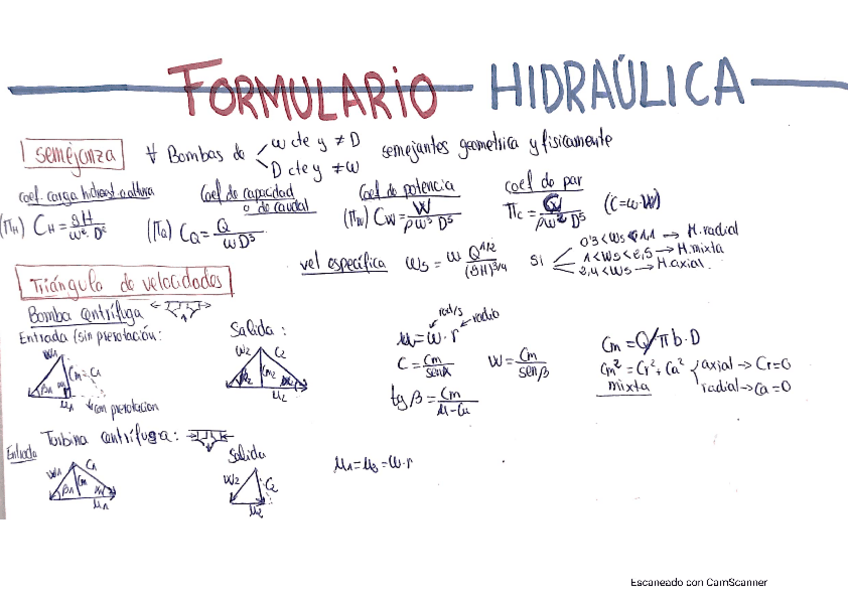 FORMULARIO HIDRAÚLICA
semejanza ∀ Bombas de
w cte y ≠ D
D cte y ≠ w
semejantes geometrica y fisicamente
coef. carga hidrost o altura
(Π_H) C_H = gH / w² D²
Coef de capacidad o de caudal
(Π_Q) C_Q = Q / w D⁵
Coef de potencia
(Π_W) C_W = W / ρ w³ D⁵
coef de par
Π_C = C / ρ w² D⁵ (C=w·W)
vel específica w_S = w Q^1/2 / (gH)^3/4 si
0'3 < w_S < 1,1 → M. radial
1 < w_S < 2,5 → M. mixta
2,4 < w_S → M. axial.
Triángulo de velocidades
Bomba centrífuga
Entrada (sin prerotación:
W₁ C_m = C₁ β₁ μ₁
con prerotacion
Salida:
W₂ C₂ C_m2 β₂ α₂ μ₂
rad/s radio
μ = w · r
C = C_m / senα W = C_m / senβ
tg β = C_m / μ - C_u
C_m = Q/π b · D
C_m² = C_r² + C_a²
mixta
axial → C_r = 0
radial → C_a = 0
Turbina centrífuga:
Entrada
W₁ C₁ C_m β₁ α₁ μ₁
Salida
W₂ C₂ μ₂
μ₁ = μ₂ = w · r
Escaneado con CamScanner